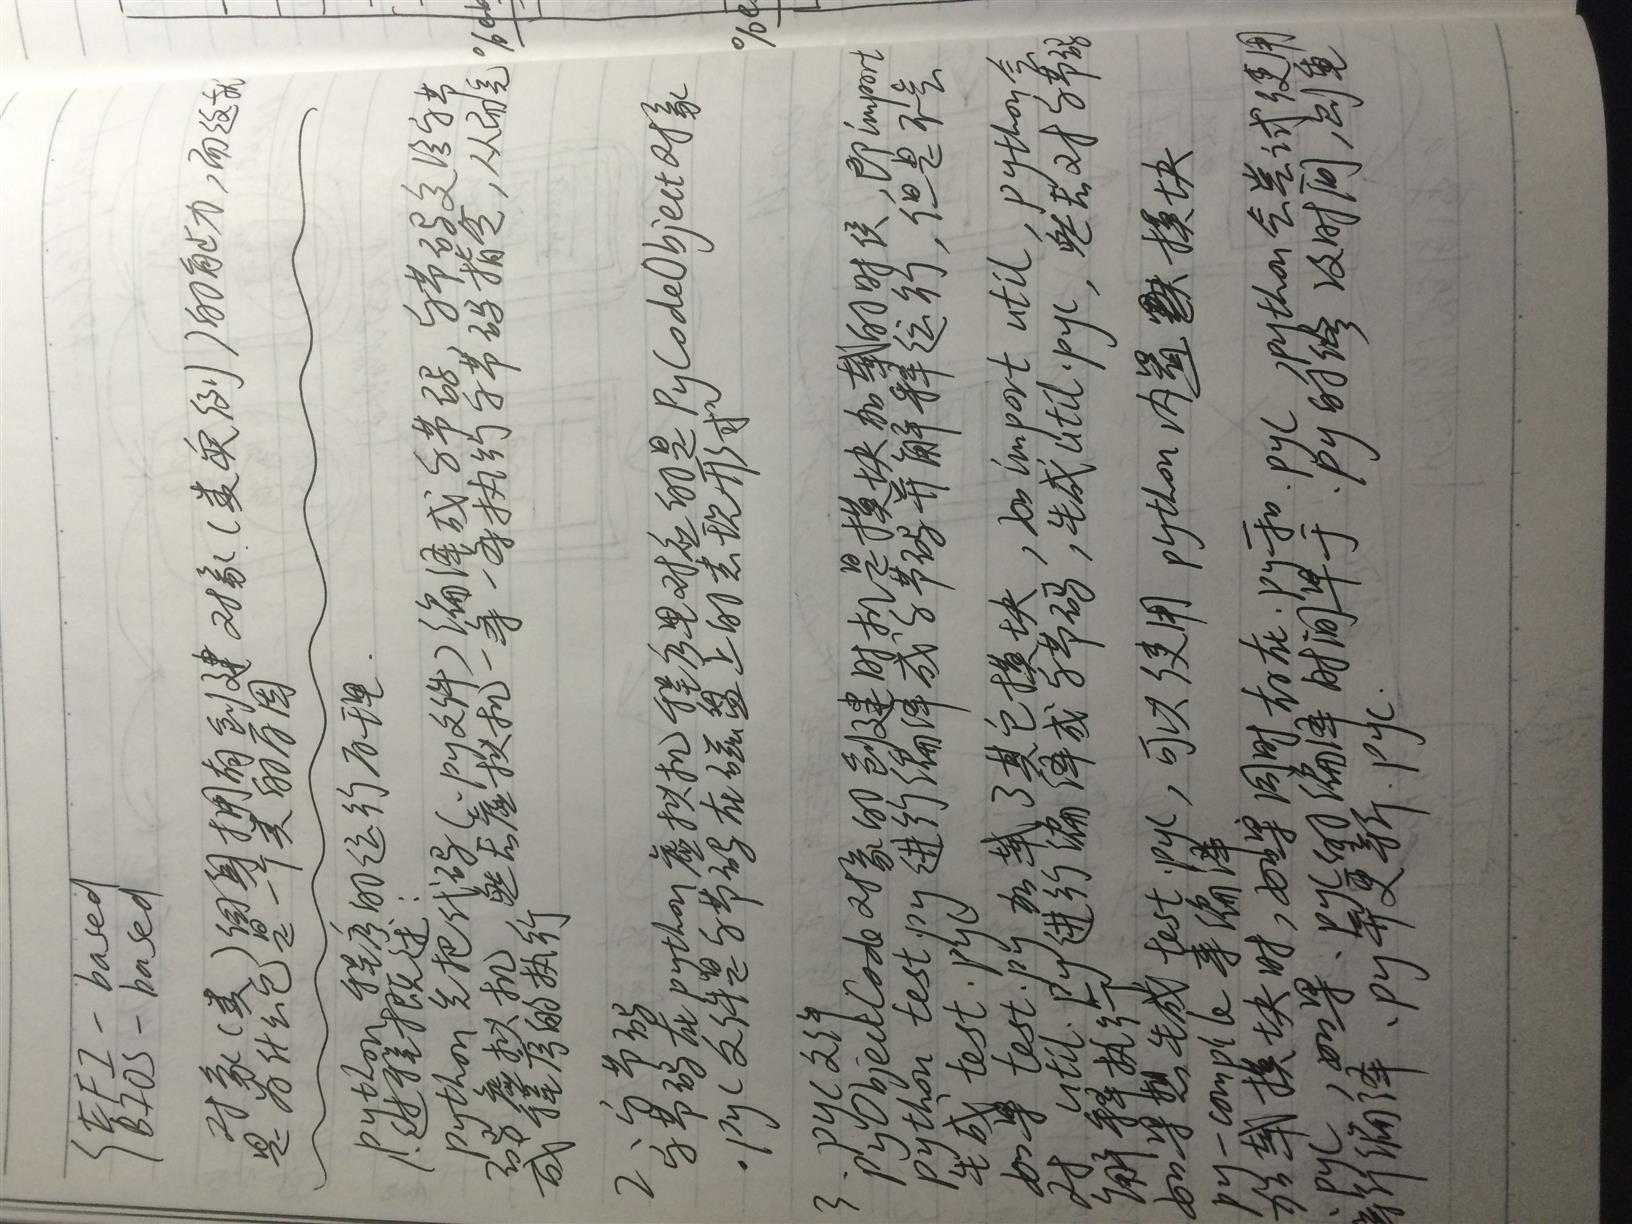 EFI - based
BIOS - based
对象(类)图自拥有创建对象(类实例)的能力,而这就
是为什么它是一个类的原因
python 程序的运行原理.
1.过程概述:
python 先把代码(.py文件)编译成字节码,字节码交给字节
码虚拟机,然后虚拟机一条一条执行字节码指令,从而完
成程序的执行
2.字节码
字节码在python虚拟机程序里对应的是PyCodeObject对象
.pyc文件是字节码在磁盘上的表现形式
3 .pyc文件
PyObjectCode对象的创建时机是模块加载的时候,即import
python test.py 进行编译成字节码并解释运行,但是不会
生成 test.pyc
如果 test.py 加载了其它模块,如import util, python会
对 util.py 进行编译成字节码,生成util.pyc,然后对字节码
解释执行
如果想生成test.pyc,可以使用 python 内置 模块
py-comple 来编译
加载模块时,如果同时存在.py和.pyc,python会尝试使用
.pyc,如果.pyc的编译时间早于.py的修改时间,则重
新编译.py并更新.pyc.
%
%